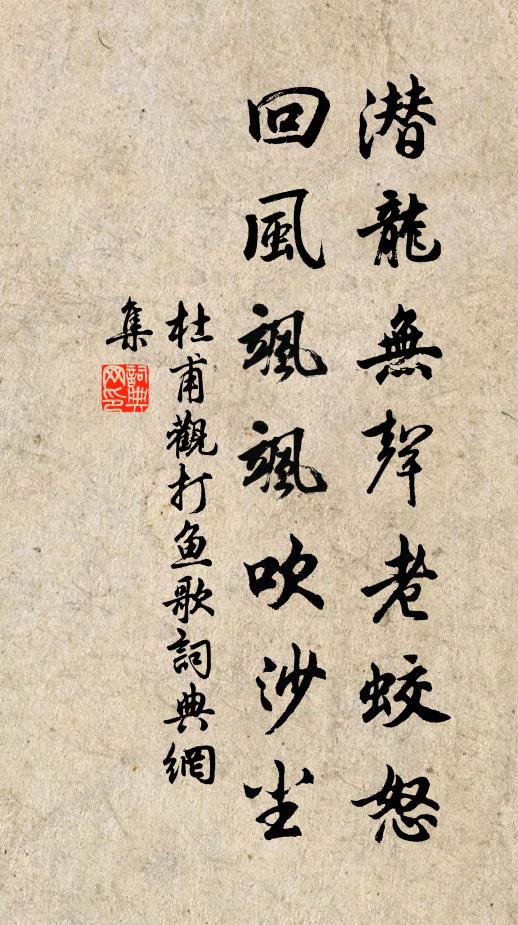 潜龍無聲老蛟怒
回風颯颯吹沙尘
杜甫觀打鱼歌詞典網
集
詞典
网印